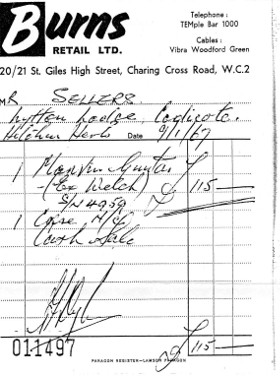 Burns
RETAIL LTD.
Telephone :
TEMple Bar 1000
Cables :
Vibra Woodford Green
20/21 St. Giles High Street, Charing Cross Road, W.C.2
MR SELLERS
Lytton Lodge, Codicote.
Hitchin Herts Date 9/1/67
1 Marvin Guitar
(Ex Welch) £ 115—
S/N 4959
1 Case N/C
Cash Sale
011497 £ 115—
PARAGON REGISTER—LAMSON PARAGON